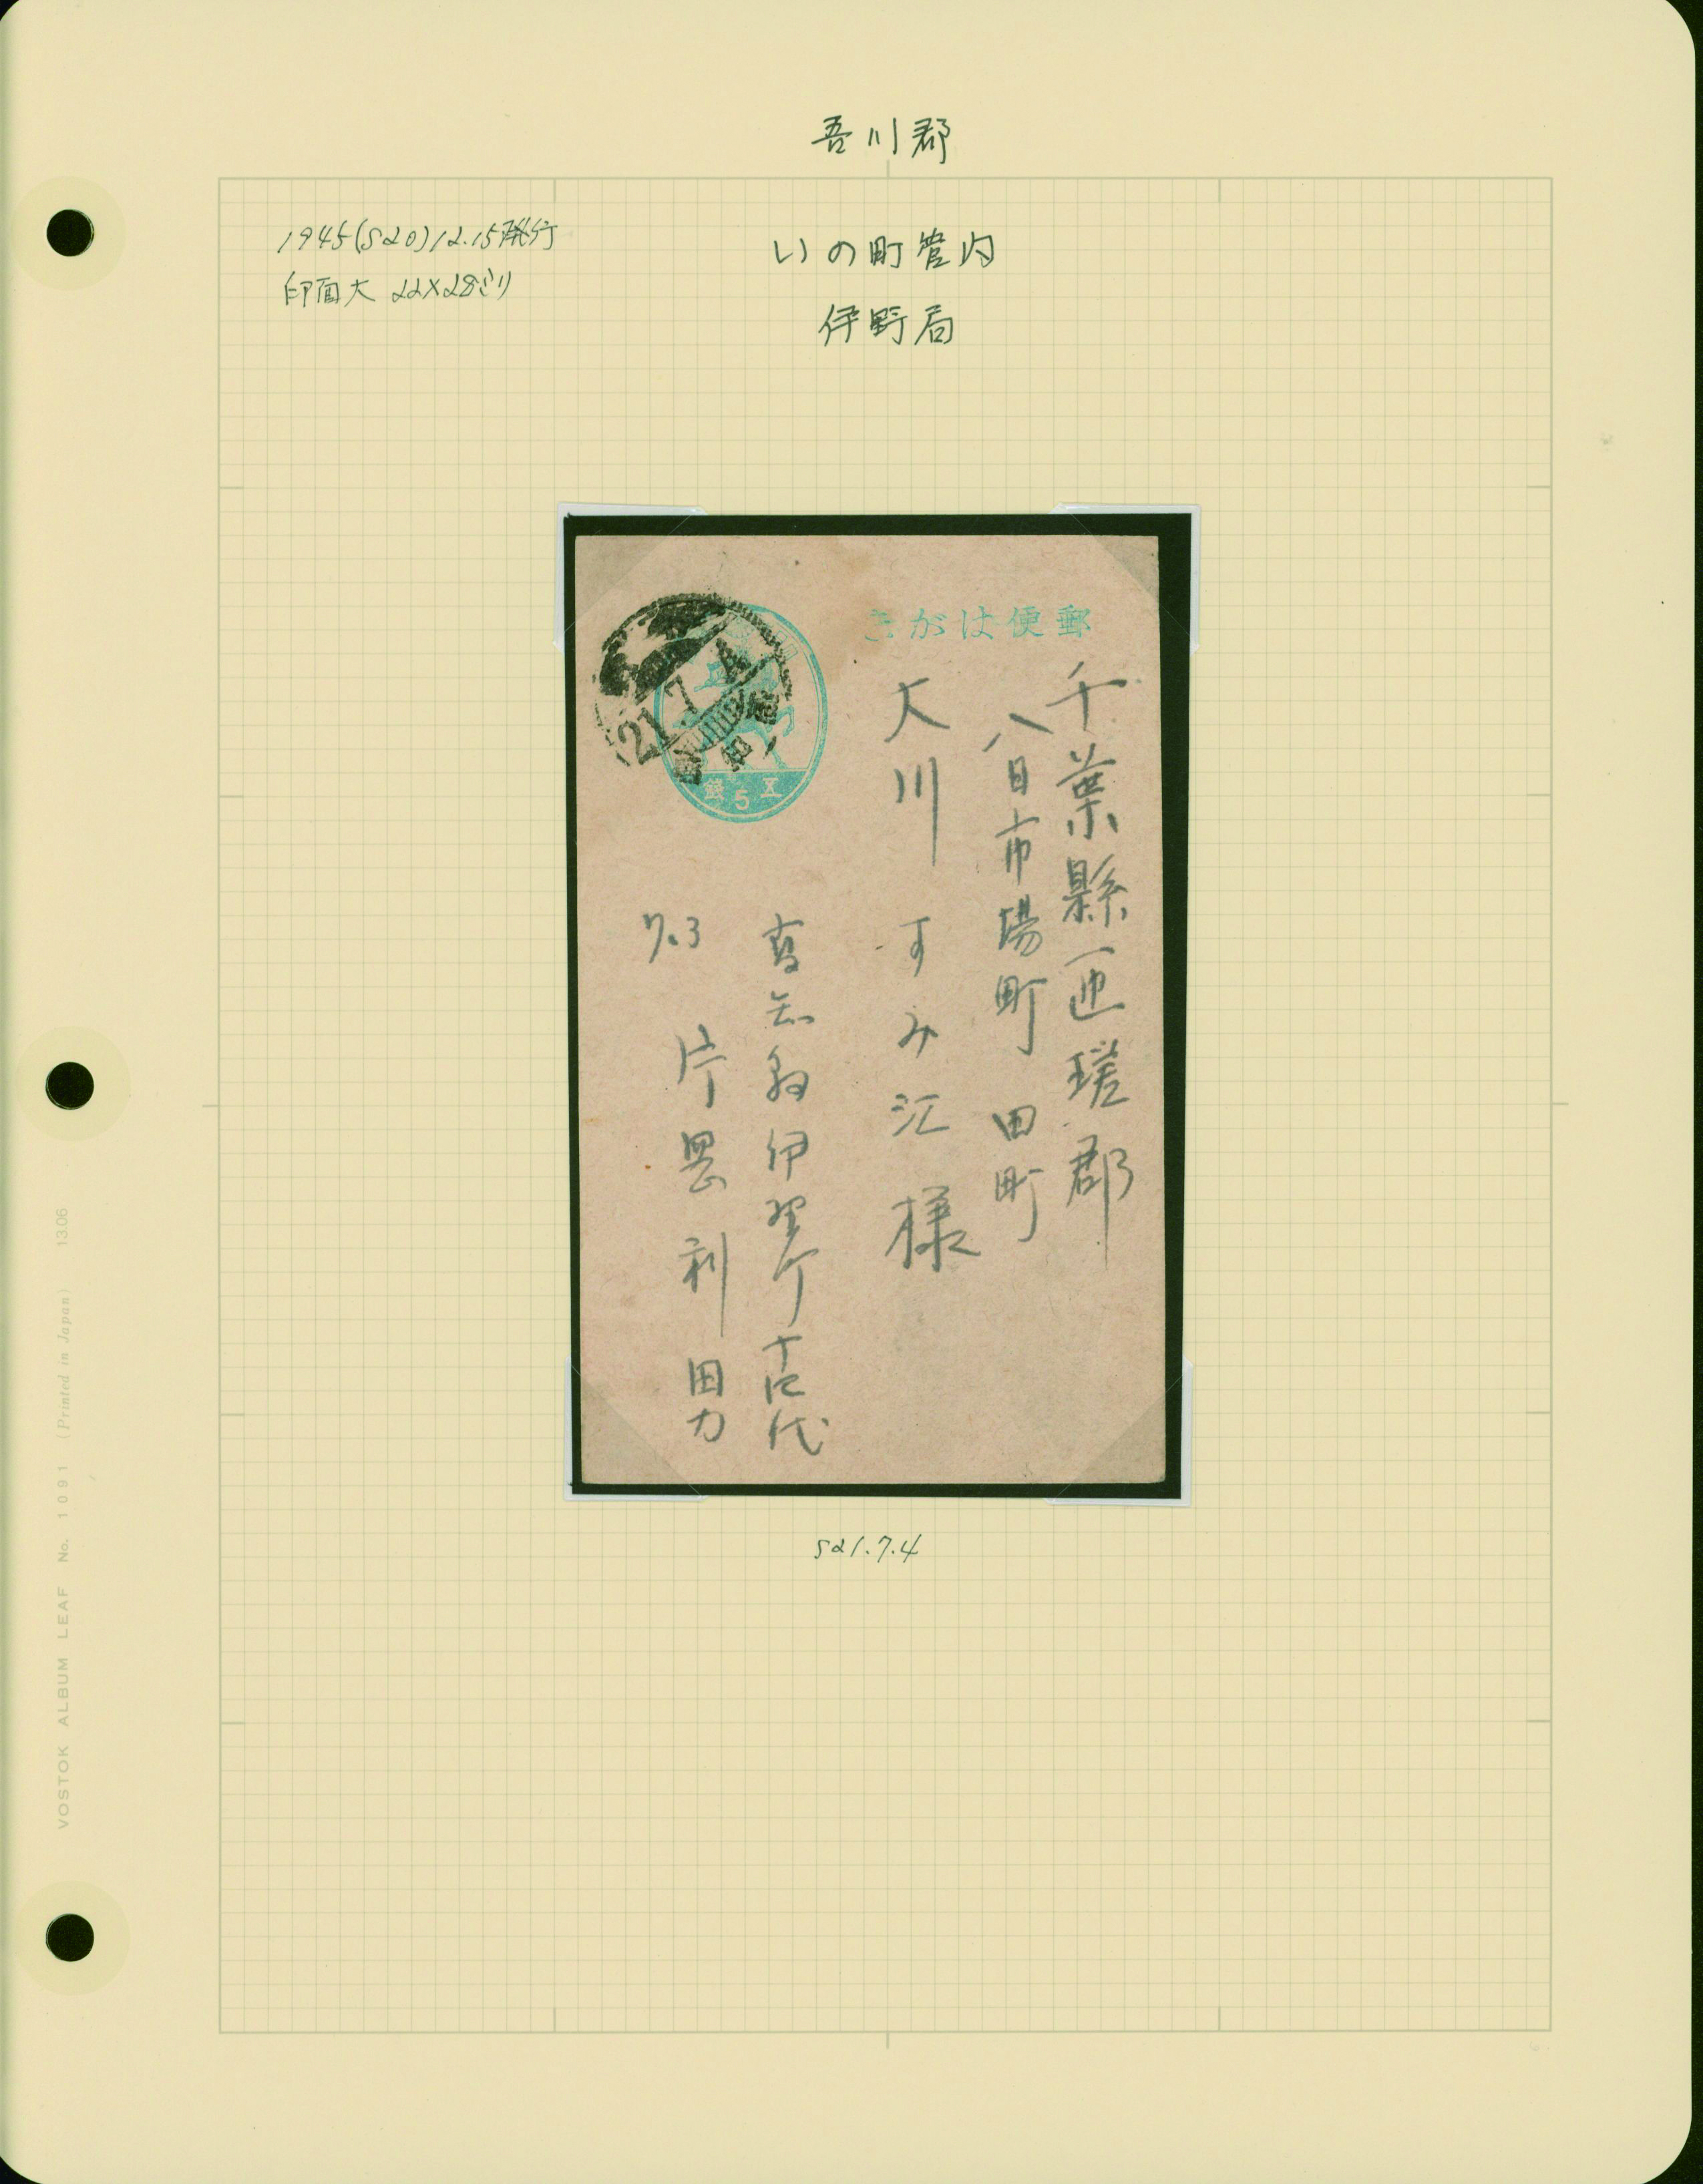 吾川郡
1945(S20)12.15発行
印面大 22×28ミリ
いの町管内
伊野局
郵便はがき
21.7.4
五5銭
千葉縣匝瑳郡
八日市場町 田町
大川 すみ江 様
高知縣伊野町
片岡利男
7.3
S21.7.4
VOSTOK ALBUM LEAF No. 1091 (Printed in Japan) 1306